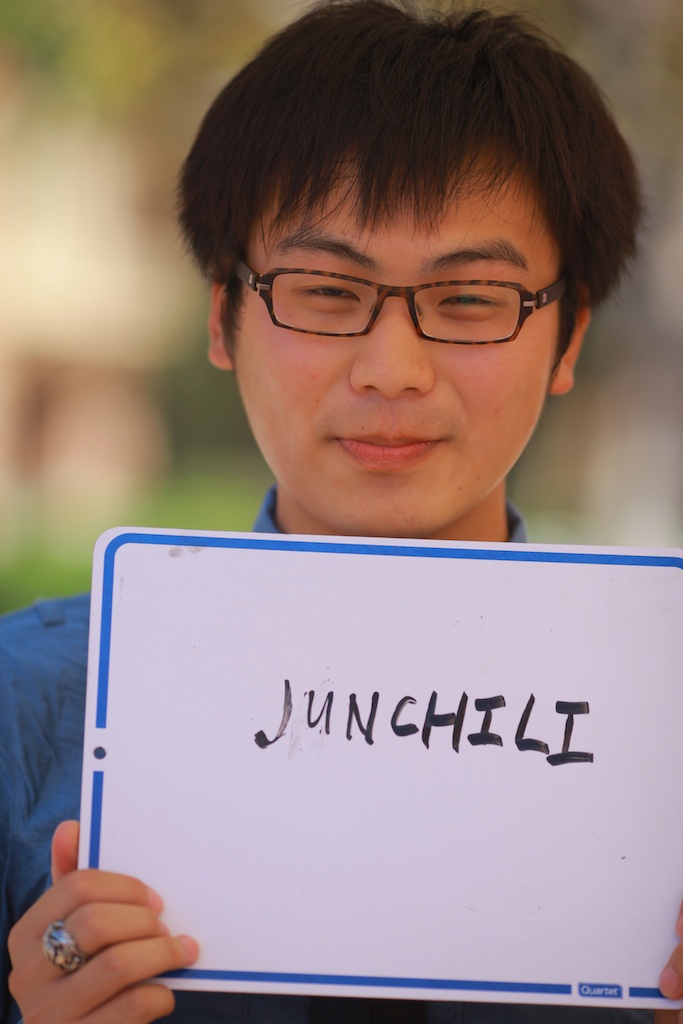 JUNCHILI
Quartet